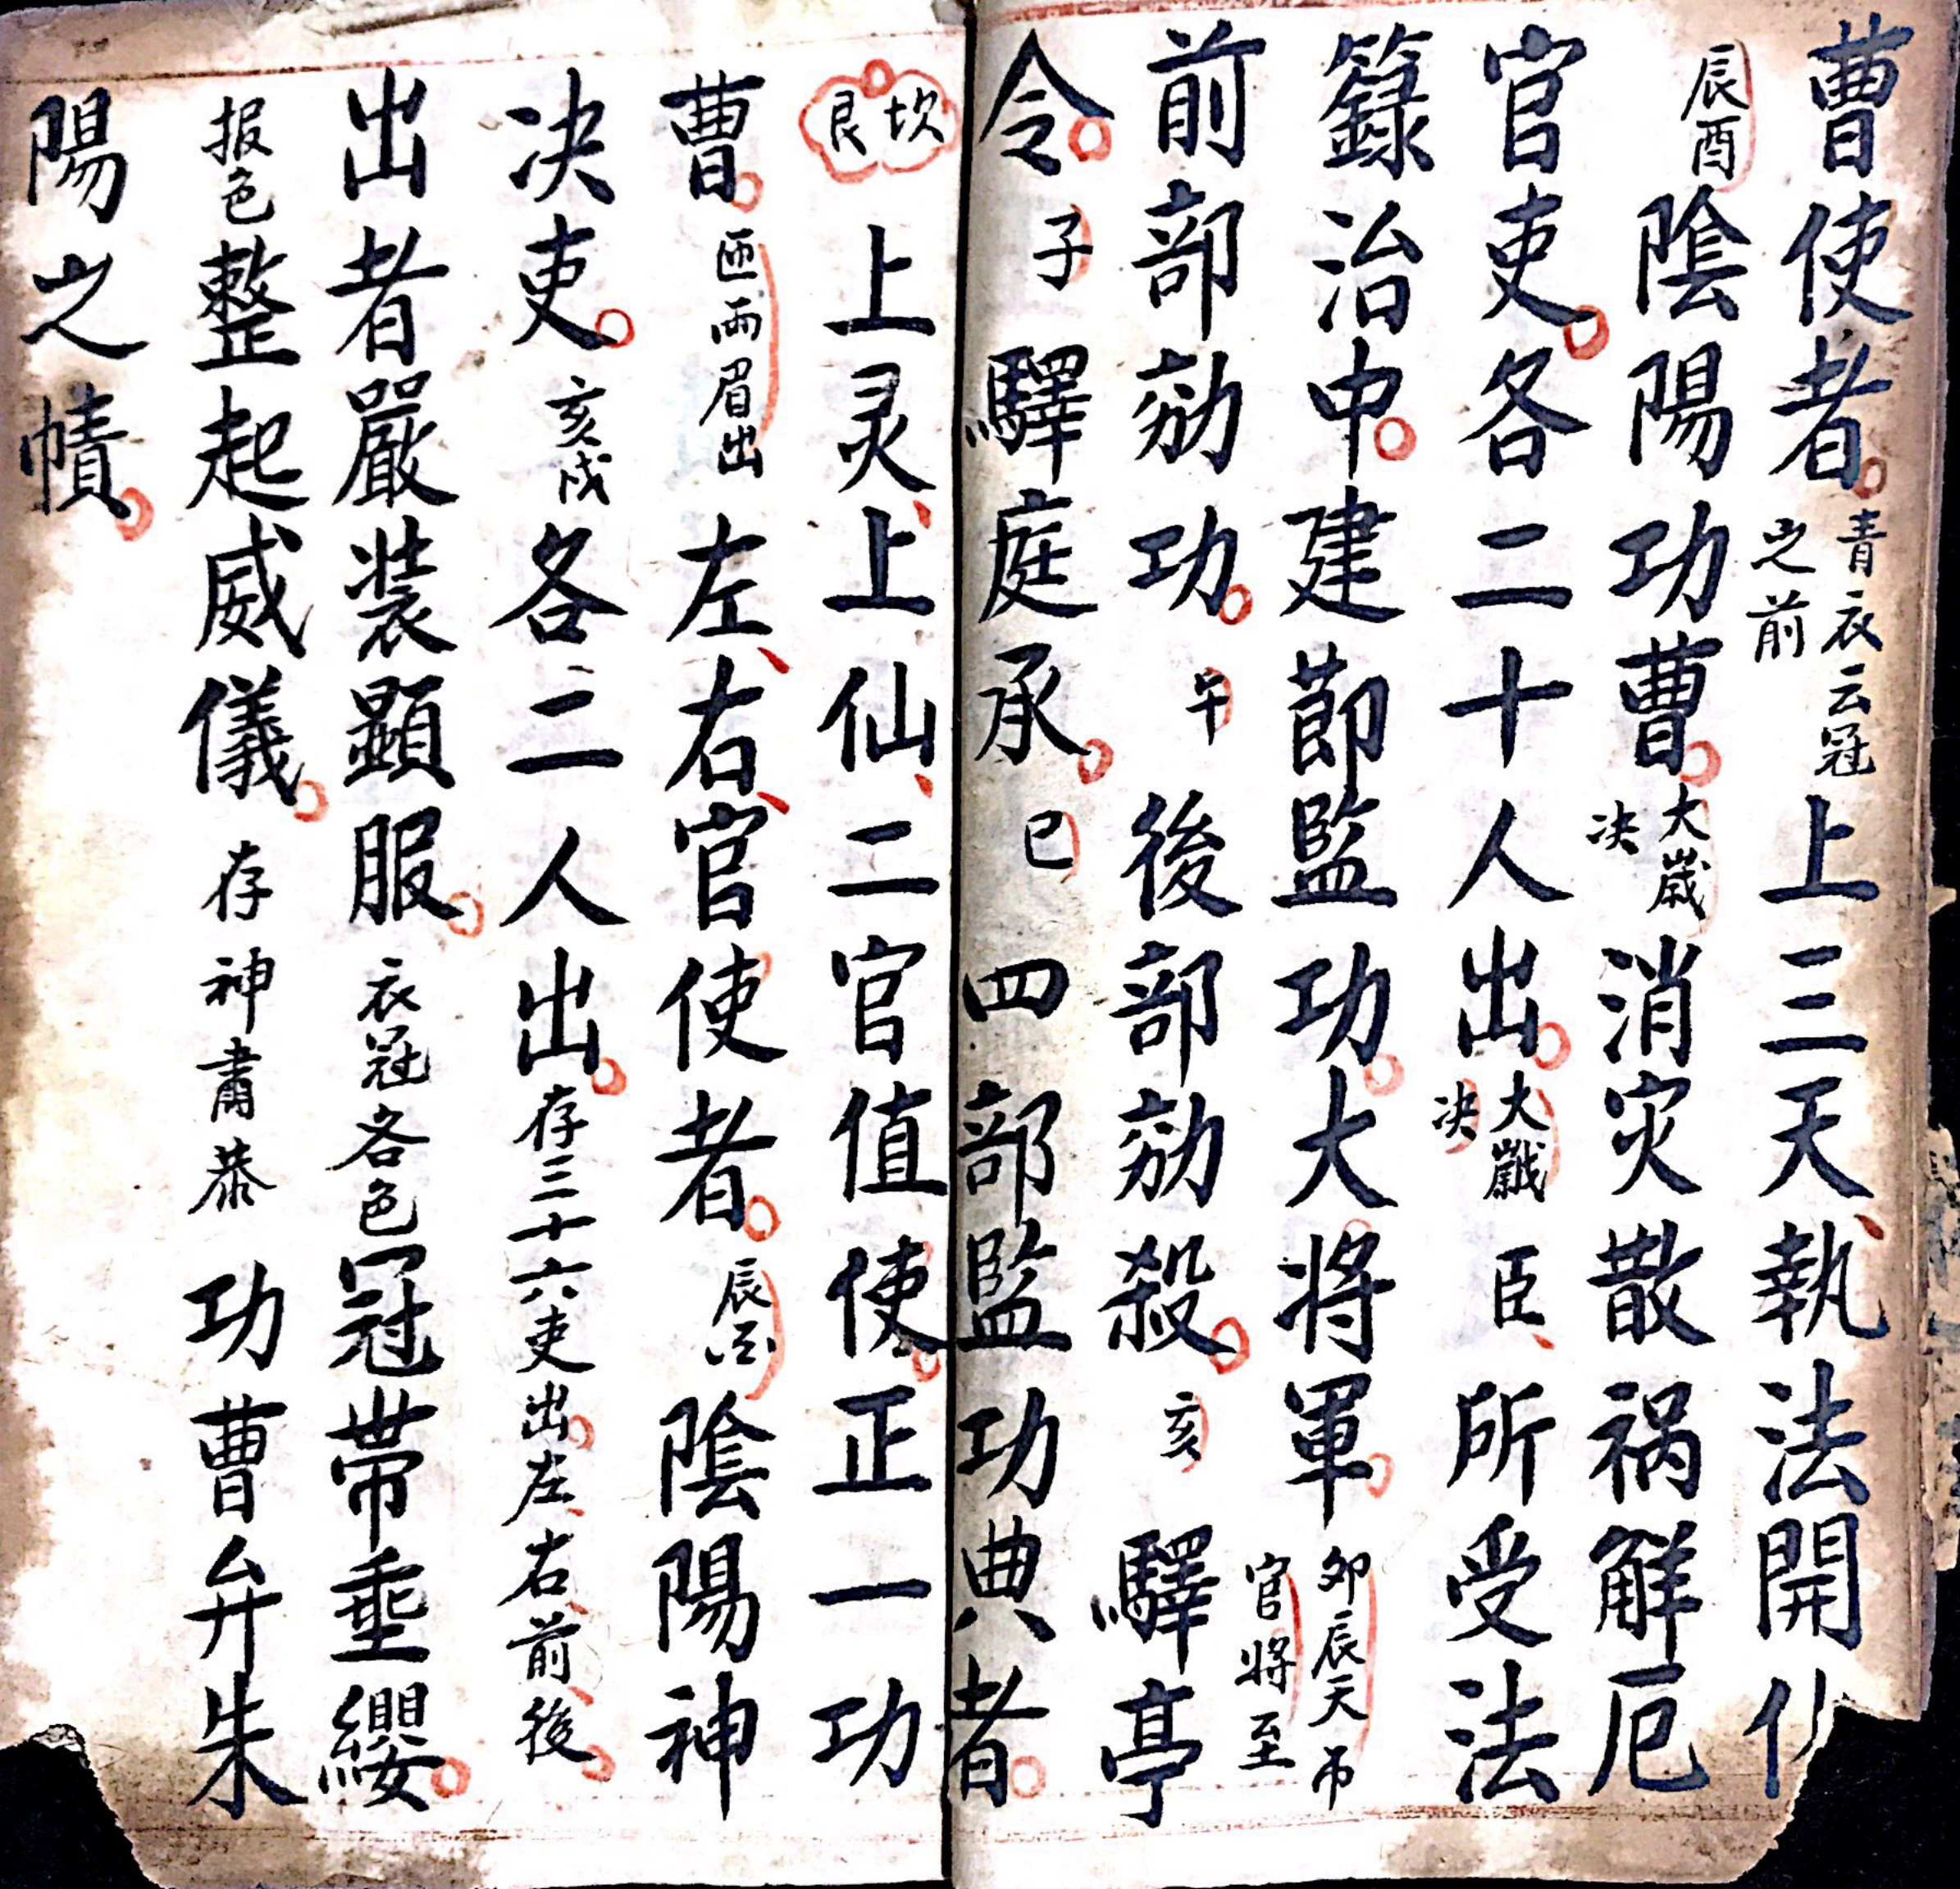 曹使者。青衣云冠之前上三天、執法開化
辰酉陰陽功曹。大歲决消灾散祸解厄
官吏。各二十人出。大戲决臣、所受法
籙治中。建節監功。大将軍。夘辰天帀官將至
前部劾功。午後部劾殺。亥驛亭
令。子驛庭承。巳四部監功典者。
坎艮上灵、上仙、二官值使。正一功
曹。両眉出左、右、官使者。辰陰陽神
决吏。亥戌各二人出。存三十六吏出。左、右、前、後。
出者嚴裝顕服。衣冠各色冠帶垂纓。
报色整起威儀。存神肅恭功曹弁朱
陽之幘。